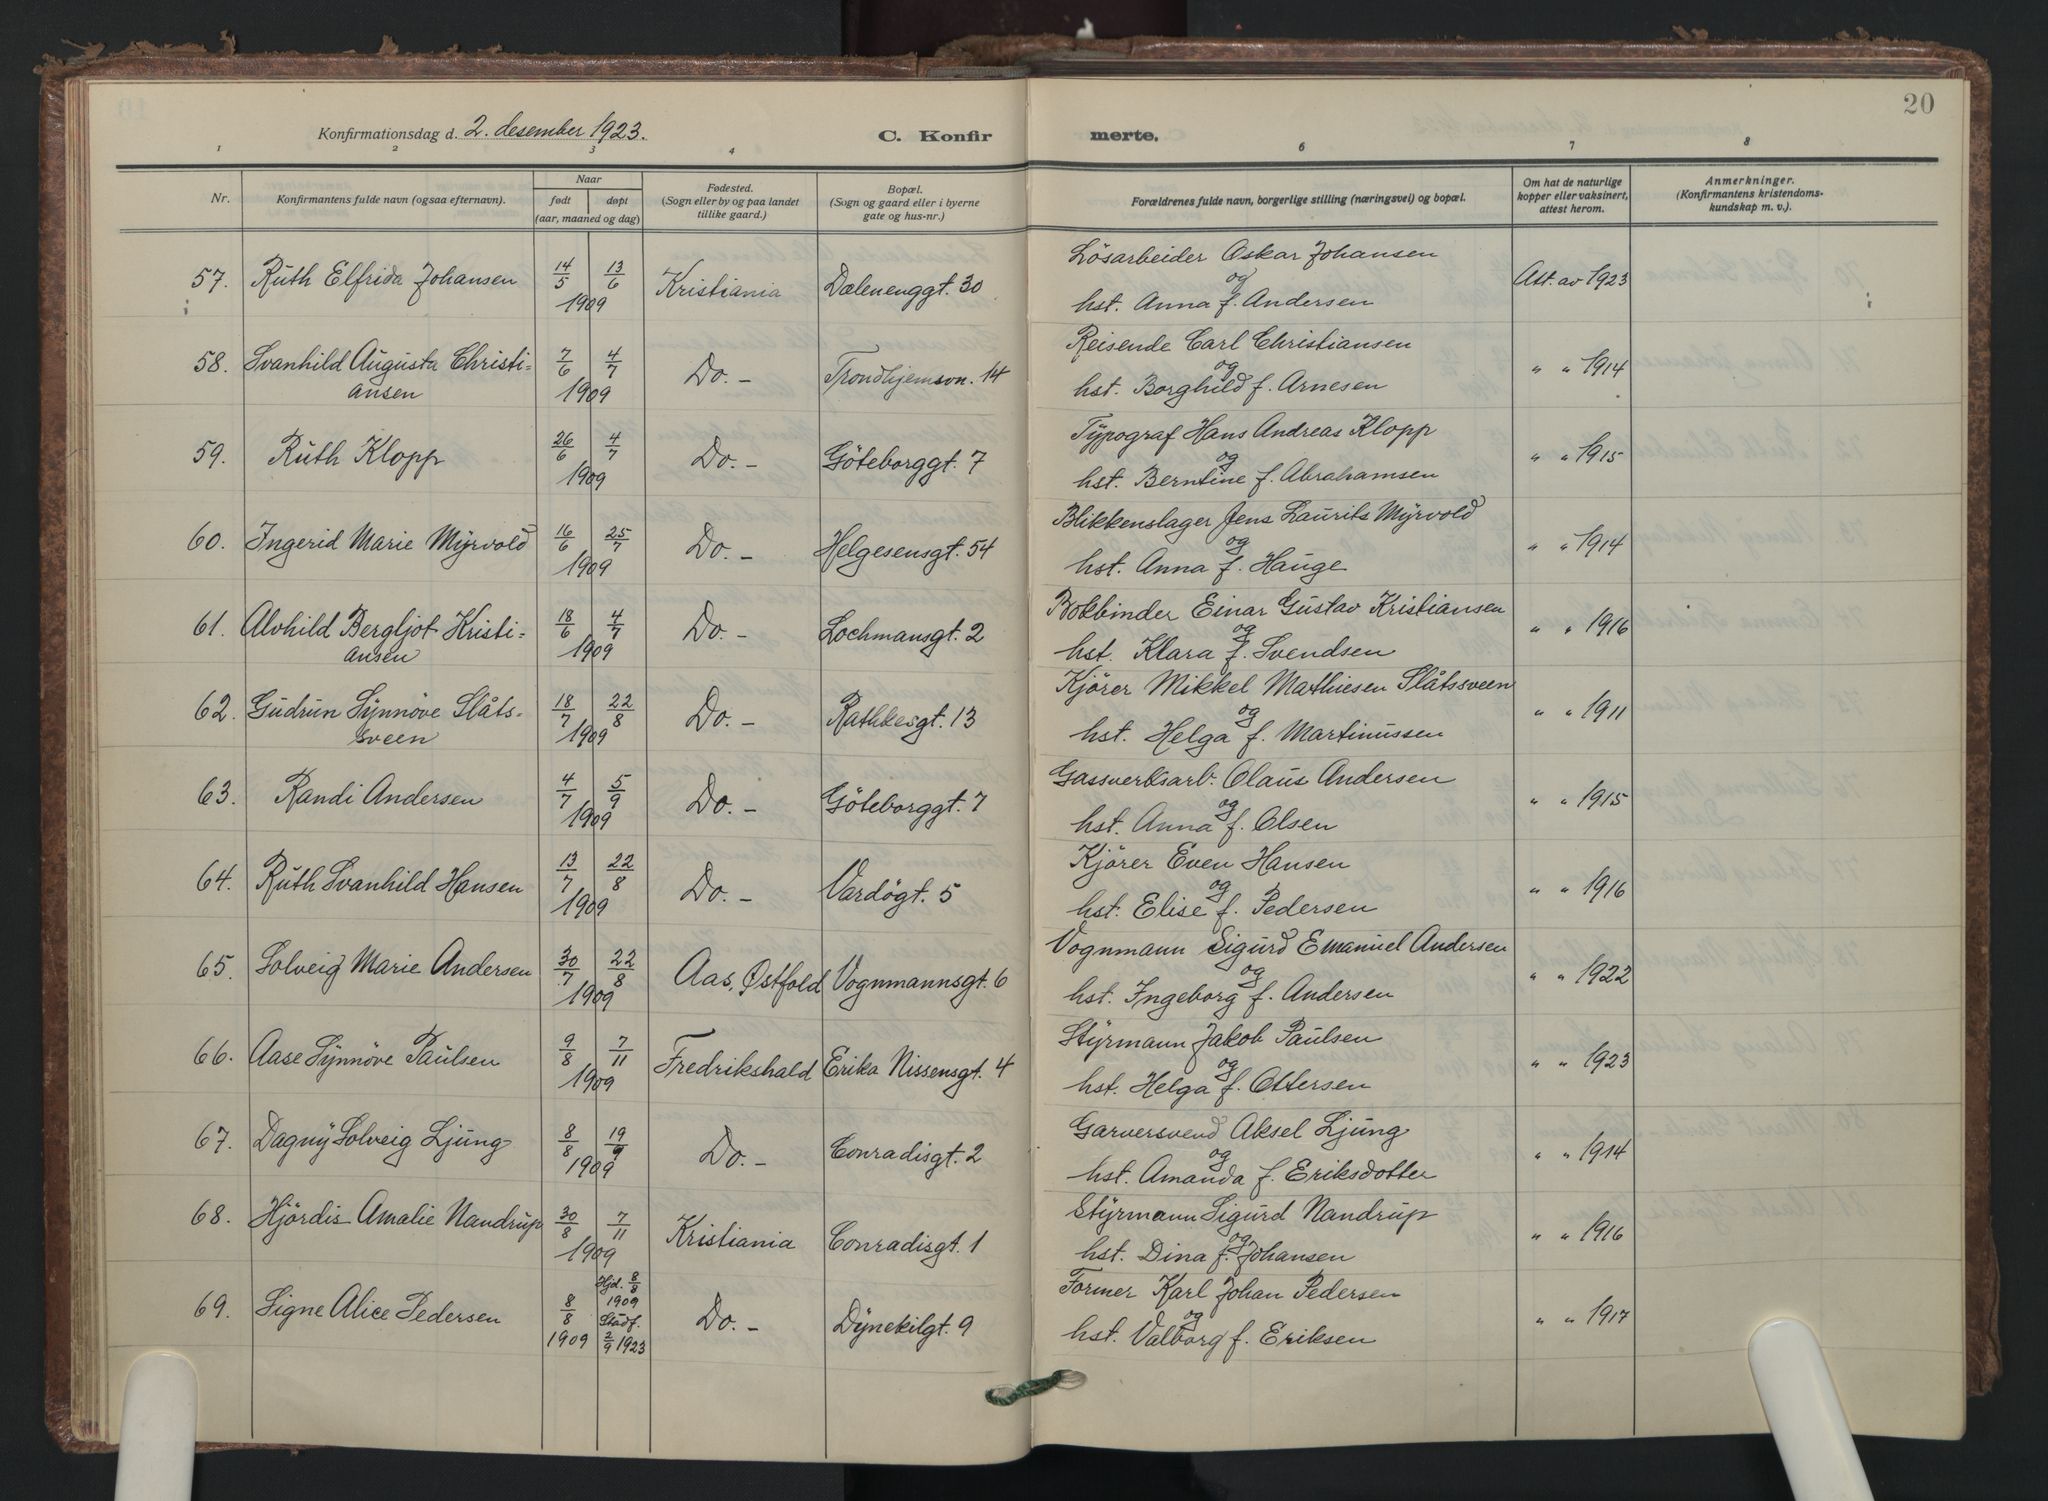 20
Konfirmationsdag d. 2. desember 1923.
C. Konfir
merte.
1 2 3 4 6 7 8
Nr.
Konfirmantens fulde navn (ogsaa efternavn).
Naar
født døpt
(aar, maaned og dag)
Fødested.
(Sogn eller by og paa landet
tillike gaard.)
Bopæl.
(Sogn og gaard eller i byerne
gate og hus-nr.)
Forældrenes fulde navn, borgerlige stilling (næringsvei) og bopæl.
Om hat de naturlige
kopper eller vaksinert,
attest herom.
Anmerkninger.
(Konfirmantens kristendoms-
kundskap m. v.).
57. Ruth Elfrida Johansen 14/5 13/6 1909 Kristiania Dælenenggt. 30
Lösarbeider Oskar Johansen
og
hst. Anna f. Andersen
Att. av 1923
58. Svanhild Augusta Christi-
ansen
7/6 4/7 1909 Do. - Trondhjemsvn. 14
Reisende Carl Christiansen
og
hst. Borghild f. Arnesen
" " 1914
59. Ruth Klopp 26/6 4/7 1909 Do. - Göteborggt. 7
Typograf Hans Andreas Klopp
og
hst. Berntine f. Abrahamsen
" " 1915
60. Ingerid Marie Myrvold 16/6 25/7 1909 Do. - Helgesensgt. 54
Blikkenslager Jens Laurits Myrvold
og
hst. Anna f. Hauge
" " 1914
61. Alvhild Bergljot Kristi-
ansen
18/6 4/7 1909 Do. - Lochmansgt. 2
Bokbinder Einar Gustav Kristiansen
og
hst. Klara f. Svendsen
" " 1916
62. Gudrun Synnöve Slåts-
sveen
18/7 22/8 1909 Do. - Rathkesgt. 13
Kjörer Mikkel Mathiesen Slåtssveen
og
hst. Helga f. Martinussen
" " 1911
63. Randi Andersen 4/7 5/9 1909 Do. - Göteborggt. 7
Gassverksarb. Olaus Andersen
og
hst. Anna f. Olsen
" " 1915
64. Ruth Svanhild Hansen 13/7 22/8 1909 Do. - Vardögt. 5
Kjörer Even Hansen
og
hst. Elise f. Pedersen
" " 1916
65. Solveig Marie Andersen 30/7 22/8 1909 Aas, Østfold Vognmannsgt. 6
Vognmann Sigurd Emanuel Andersen
og
hst. Ingeborg f. Andersen
" " 1922
66. Aase Synnöve Paulsen 9/8 7/11 1909 Fredrikshald Erika Nissensgt. 4
Styrmann Jakob Paulsen
og
hst. Helga f. Ottersen
" " 1923
67. Dagny Solveig Ljung 8/8 19/9 1909 Do. - Conradisgt. 2
Garversvend Aksel Ljung
og
hst. Amanda f. Eriksdotter
" " 1914
68. Hjördis Amalie Nandrup 30/8 7/11 1909 Kristiania Conradisgt. 1
Styrmann Sigurd Nandrup
og
hst. Dina f. Johansen
" " 1916
69. Signe Alice Pedersen 8/8 1909 Hjd. 8/8 1909 Stadf. 2/9 1923 Do. - Dynekilgt. 9
Former Karl Johan Pedersen
og
hst. Valborg f. Eriksen
" " 1917